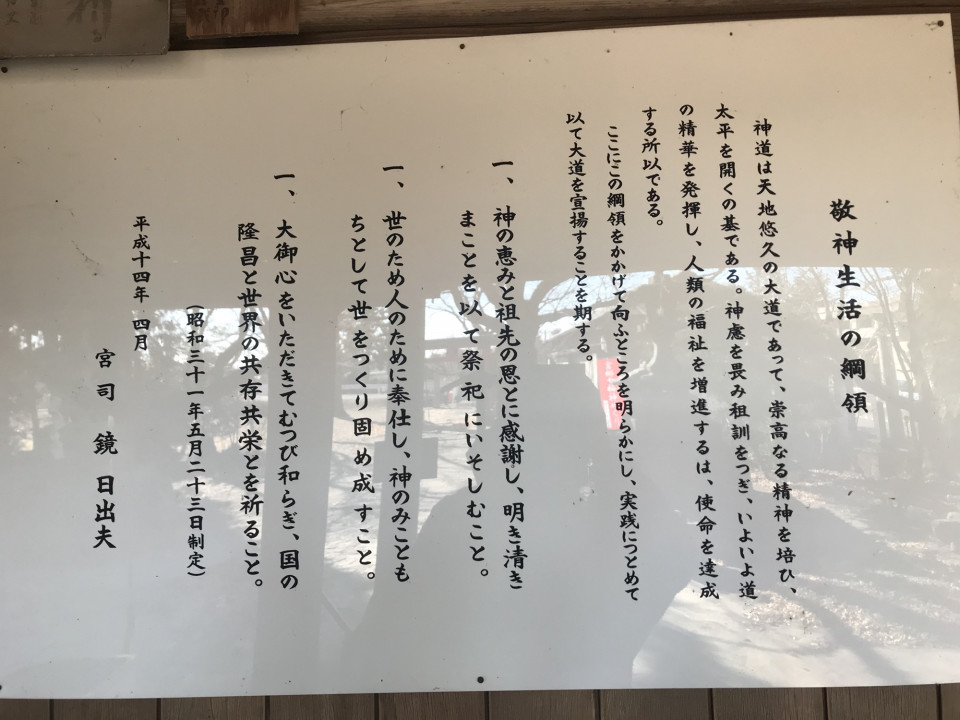 敬神生活の綱領
神道は天地悠久の大道であって、崇高なる精神を培ひ、
太平を開くの基である。神慮を畏み祖訓をつぎ、いよいよ道
の精華を発揮し、人類の福祉を増進するは、使命を達成
する所以である。
ここにこの綱領をかかげて向ふところを明らかにし、実践につとめて
以て大道を宣揚することを期する。
一、神の恵みと祖先の恩とに感謝し、明き清き
まことを以て祭祀にいそしむこと。
一、世のため人のために奉仕し、神のみことも
ちとして世をつくり固め成すこと。
一、大御心をいただきてむつび和らぎ、国の
隆昌と世界の共存共栄とを祈ること。
(昭和三十一年五月二十三日制定)
平成十四年 四月
宮司 鏡 日出夫